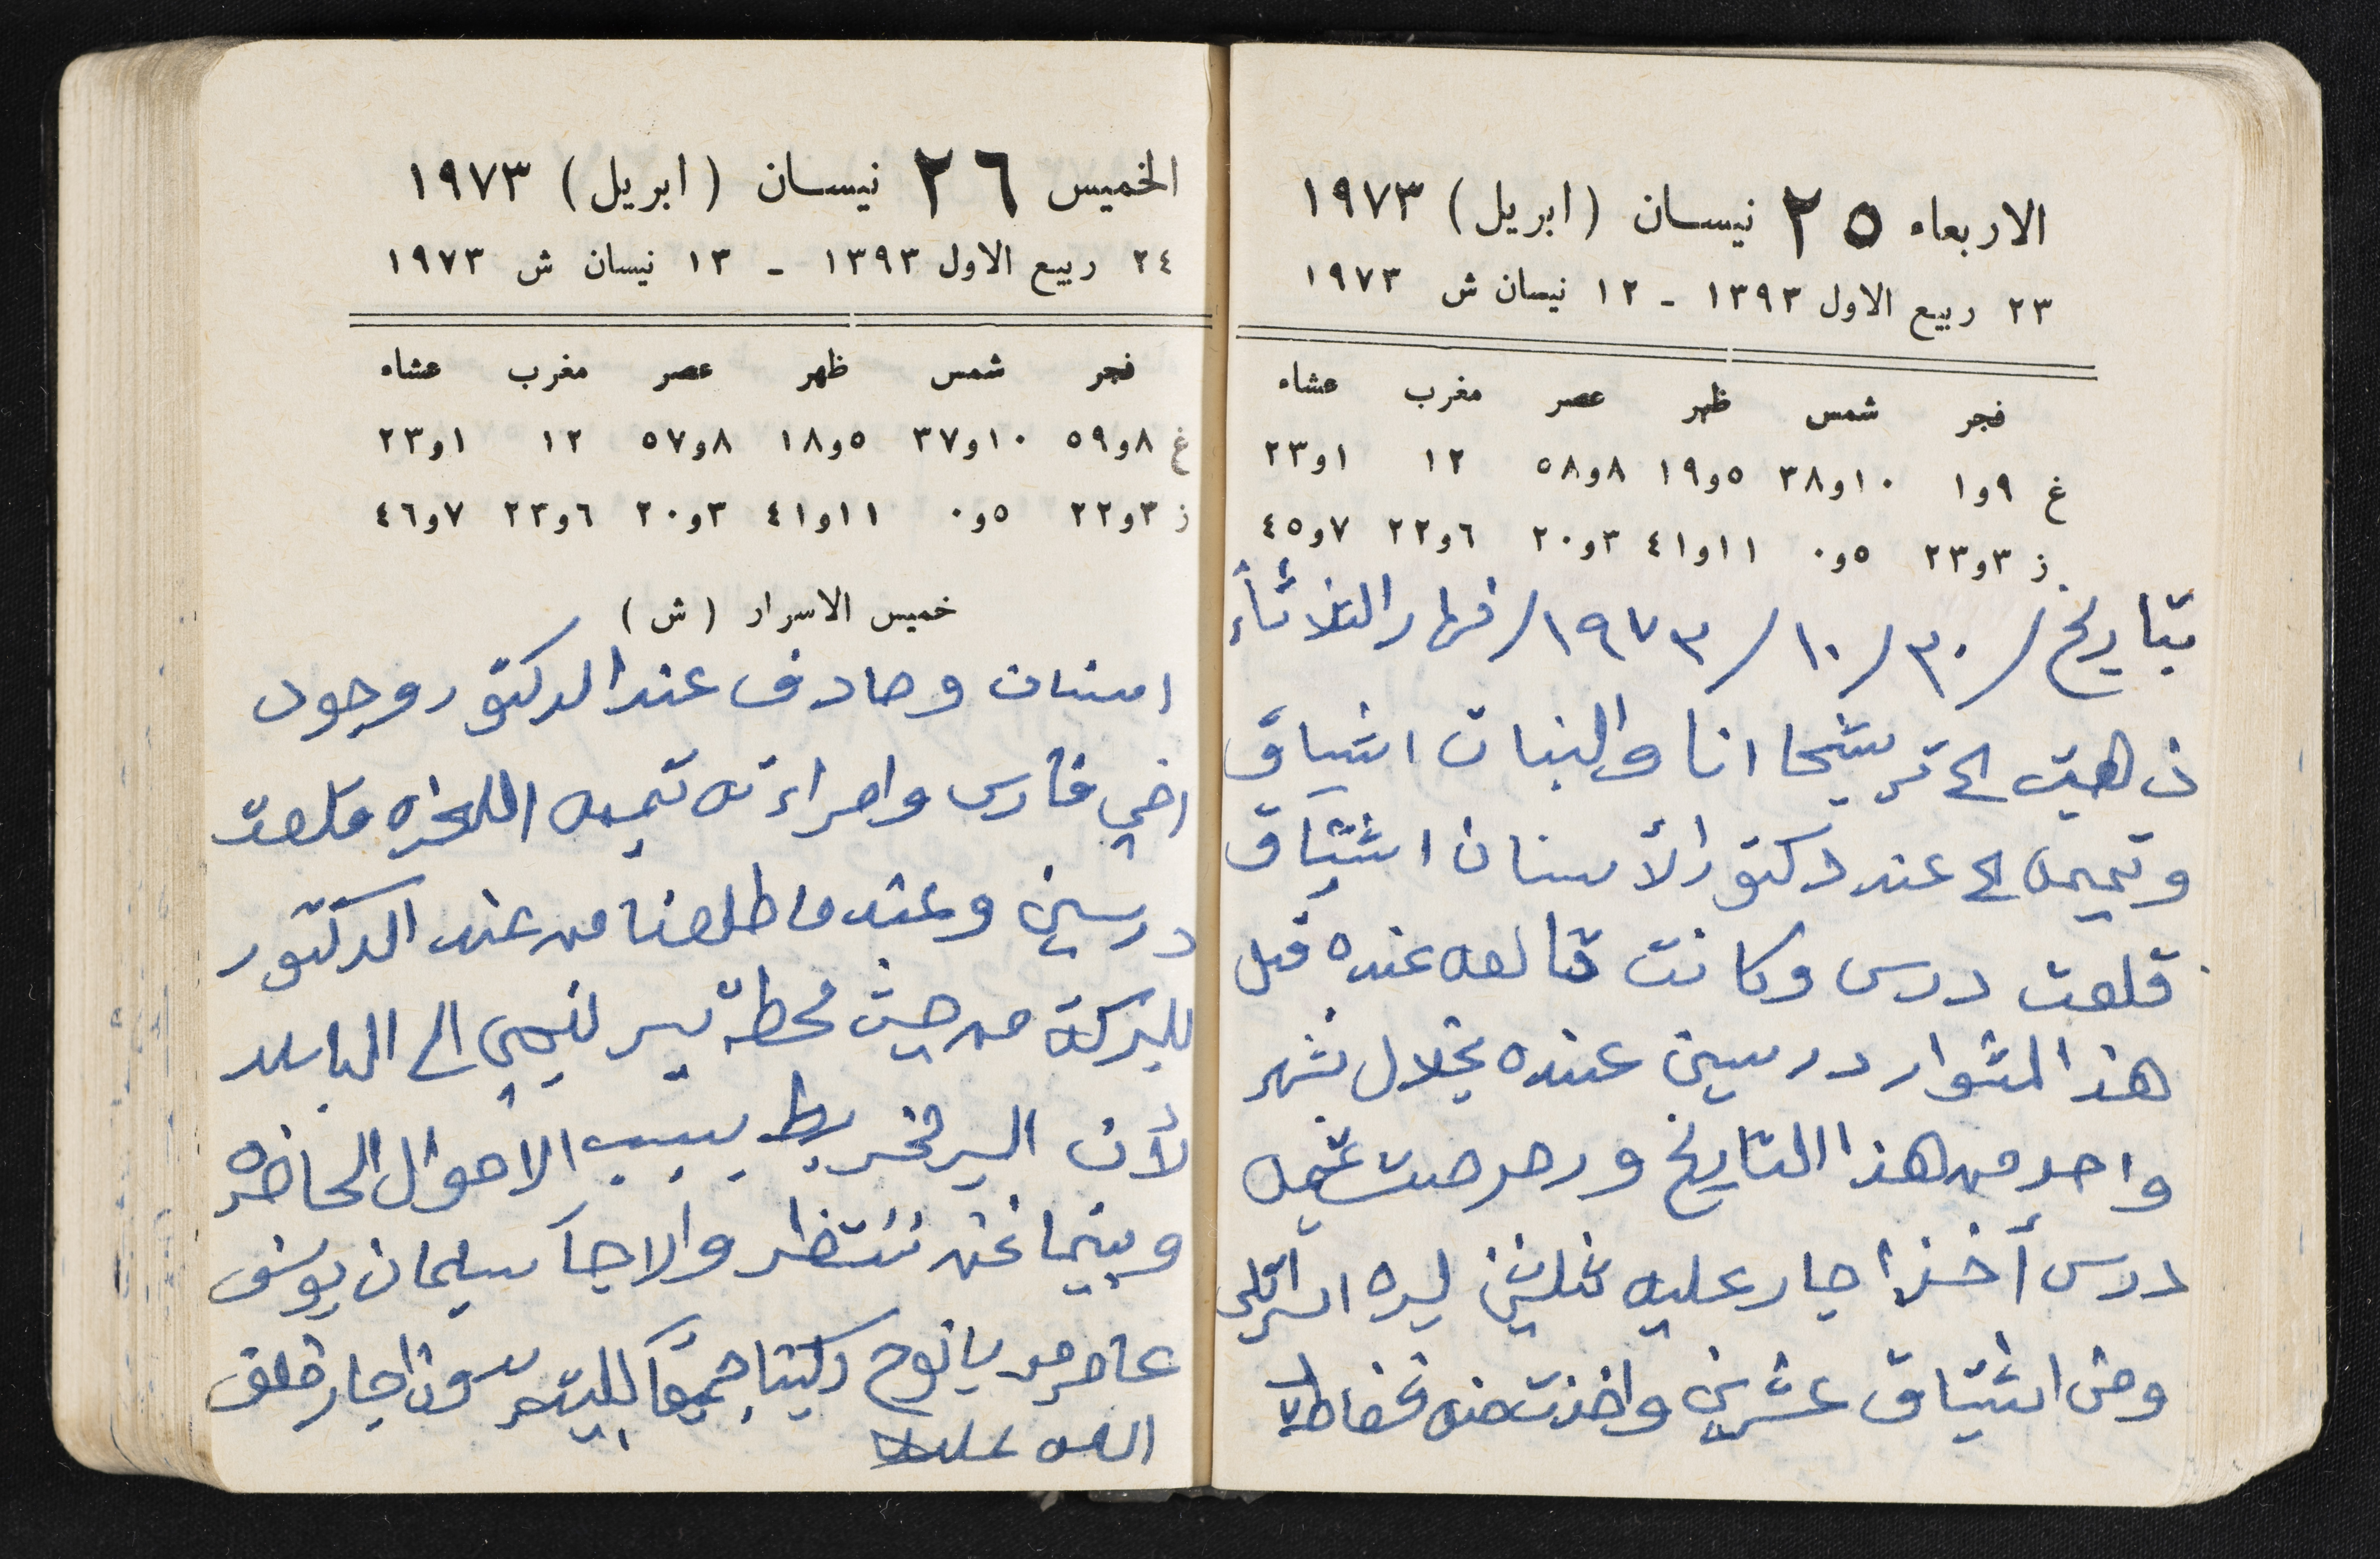 الاربعاء ٢٥ نيسان (ابريل) ١٩٧٣
٢٣ ربيع الاول ١٣٩٣ - ١٢ نيسان ش ١٩٧٣
فجر شمس ظهر عصر مغرب عشاء
غ ٩و١ ١٠و٣٨ ٥و١٩ ٨و٥٨ ١٢ ١و٢٣
ز ٣و٢٣ ٥و٠ ١١و٤١ ٣و٢٠ ٦و٢٢ ٧و٤٥
بتاريخ /٣٠/١٠/١٩٧٣/ نهار الثلاثاء
ذهبت الى ترشيحا انا والبنات اشتياق
وتميمه الى عند دكتور الأسنان اشتياق
قلعت درس وكانت قالعه عنده قبل
هذا المشوار درسين عنده بخلال شهر
واحد من هذا التاريخ و تميمه
درس أخذ اجار عليه ثلاثين ليره اسرائيلي
ومن اشتياق عشرين واخذت منه
الخميس ٢٦ نيسان (ابريل) ١٩٧٣
٢٤ ربيع الاول ١٣٩٣ - ١٣ نيسان ش ١٩٧٣
فجر شمس ظهر عصر مغرب عشاء
غ ٨و٥٩ ١٠و٣٧ ٥و١٨ ٨و٥٧ ١٢ ١و٢٣
ز ٣و٢٢ ٥و٠ ١١و٤١ ٣و٢٠ ٦و٢٣ ٧و٤٦
خميس الاسرار (ش)
اسنان وصادف عند الدكتور وجود
اخي فارس وامراءته تميمه قلعت
درسين وعندما طلعنا من عند الدكتور
للبركة من حيث محطة الى الباص
لأن السير بسبب الاحوال الحاضره
وبينما نحن ننتظر والا جآ سليمان يوسف
عامر من يانوح ركبنا جميعآ للبيت بدون اجار
الله عليه